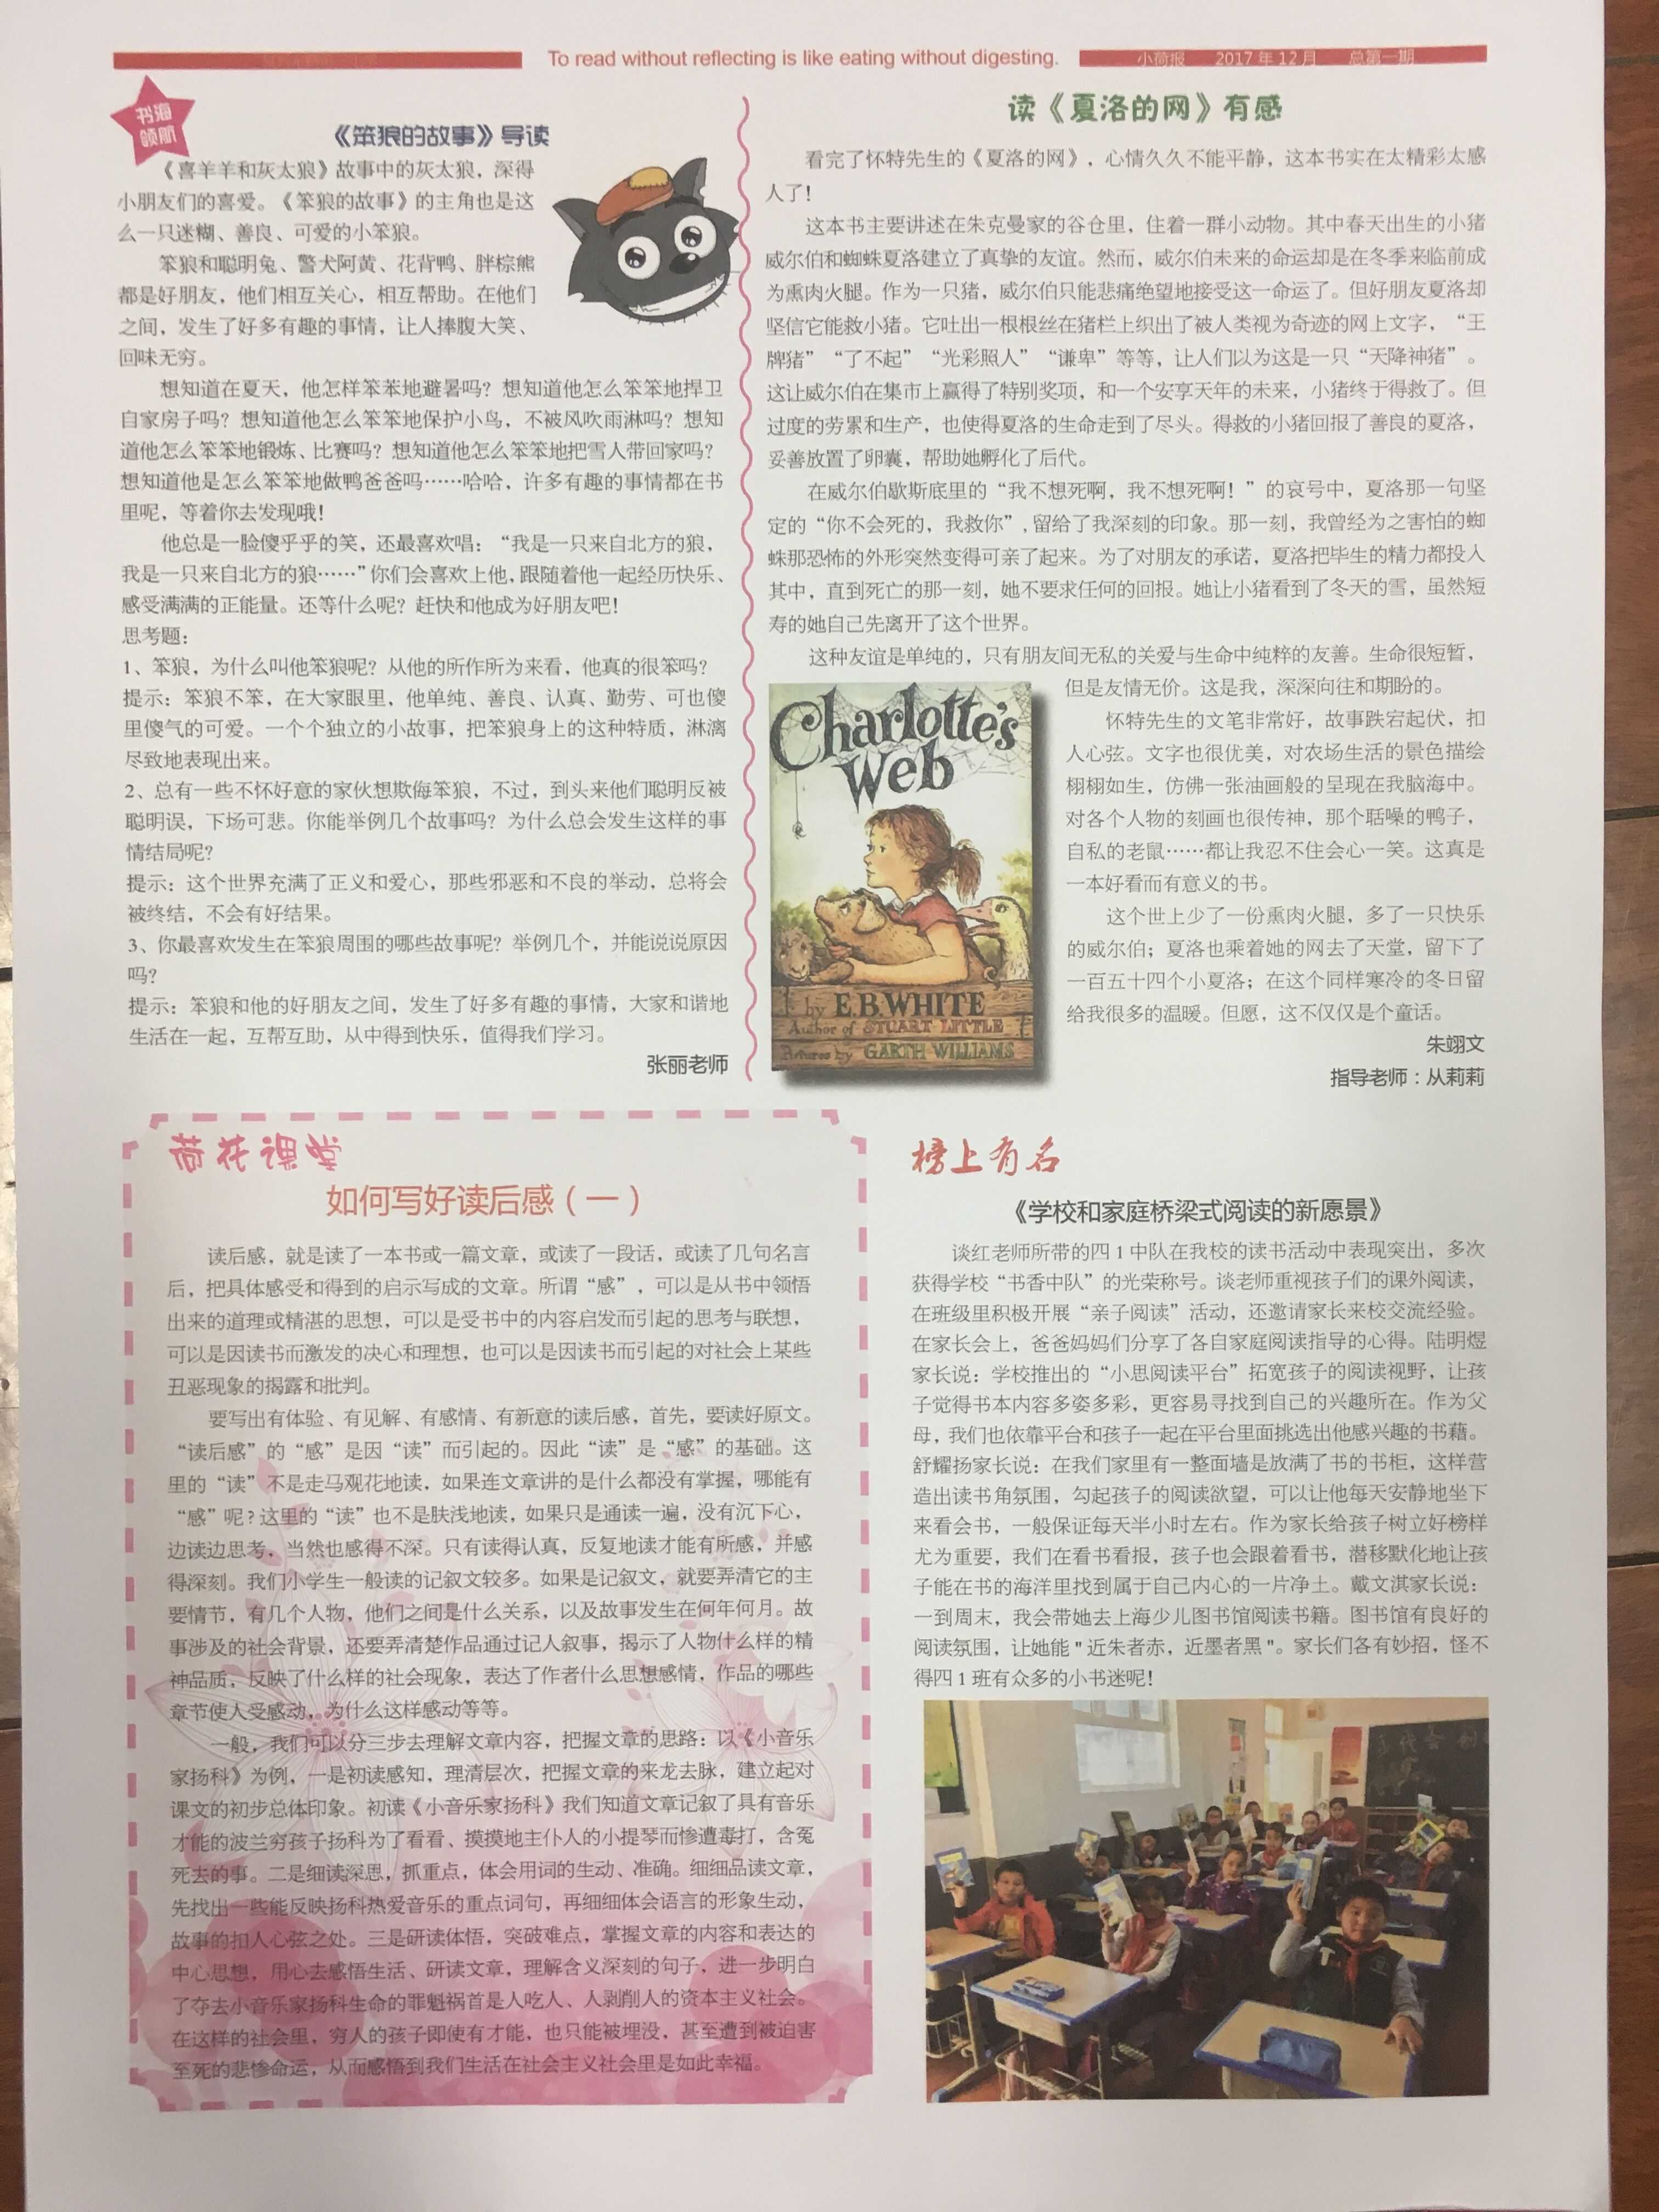 To read without reflecting is like eating without digesting.
小荷报 2017年12月 总第一期
书海
领航
《笨狼的故事》导读
《喜羊羊和灰太狼》故事中的灰太狼，深得
小朋友们的喜爱。《笨狼的故事》的主角也是这
么一只迷糊、善良、可爱的小笨狼。
笨狼和聪明兔、警犬阿黄、花背鸭、胖棕熊
都是好朋友，他们相互关心，相互帮助。在他们
之间，发生了好多有趣的事情，让人捧腹大笑、
回味无穷。
想知道在夏天，他怎样笨笨地避暑吗？想知道他怎么笨笨地捍卫
自家房子吗？想知道他怎么笨笨地保护小鸟，不被风吹雨淋吗？想知
道他怎么笨笨地锻炼、比赛吗？想知道他怎么笨笨地把雪人带回家吗？
想知道他是怎么笨笨地做鸭爸爸吗……哈哈，许多有趣的事情都在书
里呢，等着你去发现哦！
他总是一脸傻乎乎的笑，还最喜欢唱：“我是一只来自北方的狼，
我是一只来自北方的狼……”你们会喜欢上他，跟随着他一起经历快乐、
感受满满的正能量。还等什么呢？赶快和他成为好朋友吧！
思考题：
1、笨狼，为什么叫他笨狼呢？从他的所作所为来看，他真的很笨吗？
提示：笨狼不笨，在大家眼里，他单纯、善良、认真、勤劳、可也傻
里傻气的可爱。一个个独立的小故事，把笨狼身上的这种特质，淋漓
尽致地表现出来。
2、总有一些不怀好意的家伙想欺侮笨狼，不过，到头来他们聪明反被
聪明误，下场可悲。你能举例几个故事吗？为什么总会发生这样的事
情结局呢？
提示：这个世界充满了正义和爱心，那些邪恶和不良的举动，总将会
被终结，不会有好结果。
3、你最喜欢发生在笨狼周围的哪些故事呢？举例几个，并能说说原因
吗？
提示：笨狼和他的好朋友之间，发生了好多有趣的事情，大家和谐地
生活在一起，互帮互助，从中得到快乐，值得我们学习。
张丽老师
读《夏洛的网》有感
看完了怀特先生的《夏洛的网》，心情久久不能平静，这本书实在太精彩太感
人了！
这本书主要讲述在朱克曼家的谷仓里，住着一群小动物。其中春天出生的小猪
威尔伯和蜘蛛夏洛建立了真挚的友谊。然而，威尔伯未来的命运却是在冬季来临前成
为熏肉火腿。作为一只猪，威尔伯只能悲痛绝望地接受这一命运了。但好朋友夏洛却
坚信它能救小猪。它吐出一根根丝在猪栏上织出了被人类视为奇迹的网上文字，“王
牌猪”“了不起”“光彩照人”“谦卑”等等，让人们以为这是一只“天降神猪”。
这让威尔伯在集市上赢得了特别奖项，和一个安享天年的未来，小猪终于得救了。但
过度的劳累和生产，也使得夏洛的生命走到了尽头。得救的小猪回报了善良的夏洛，
妥善放置了卵囊，帮助她孵化了后代。
在威尔伯歇斯底里的“我不想死啊，我不想死啊！”的哀号中，夏洛那一句坚
定的“你不会死的，我救你”，留给了我深刻的印象。那一刻，我曾经为之害怕的蜘
蛛那恐怖的外形突然变得可亲了起来。为了对朋友的承诺，夏洛把毕生的精力都投入
其中，直到死亡的那一刻，她不要求任何的回报。她让小猪看到了冬天的雪，虽然短
寿的她自己先离开了这个世界。
这种友谊是单纯的，只有朋友间无私的关爱与生命中纯粹的友善。生命很短暂，
但是友情无价。这是我，深深向往和期盼的。
怀特先生的文笔非常好，故事跌宕起伏，扣
人心弦。文字也很优美，对农场生活的景色描绘
栩栩如生，仿佛一张油画般的呈现在我脑海中。
对各个人物的刻画也很传神，那个聒噪的鸭子，
自私的老鼠……都让我忍不住会心一笑。这真是
一本好看而有意义的书。
这个世上少了一份熏肉火腿，多了一只快乐
的威尔伯；夏洛也乘着她的网去了天堂，留下了
一百五十四个小夏洛；在这个同样寒冷的冬日留
给我很多的温暖。但愿，这不仅仅是个童话。
朱翊文
指导老师：从莉莉
Charlotte's
Web
by E.B.WHITE
Author of STUART LITTLE
Pictures by GARTH WILLIAMS
荷花课堂
如何写好读后感（一）
读后感，就是读了一本书或一篇文章，或读了一段话，或读了几句名言
后，把具体感受和得到的启示写成的文章。所谓“感”，可以是从书中领悟
出来的道理或精湛的思想，可以是受书中的内容启发而引起的思考与联想，
可以是因读书而激发的决心和理想，也可以是因读书而引起的对社会上某些
丑恶现象的揭露和批判。
要写出有体验、有见解、有感情、有新意的读后感，首先，要读好原文。
“读后感”的“感”是因“读”而引起的。因此“读”是“感”的基础。这
里的“读”不是走马观花地读，如果连文章讲的是什么都没有掌握，哪能有
“感”呢？这里的“读”也不是肤浅地读，如果只是通读一遍，没有沉下心，
边读边思考，当然也感得不深。只有读得认真，反复地读才能有所感，并感
得深刻。我们小学生一般读的记叙文较多。如果是记叙文，就要弄清它的主
要情节，有几个人物，他们之间是什么关系，以及故事发生在何年何月。故
事涉及的社会背景，还要弄清楚作品通过记人叙事，揭示了人物什么样的精
神品质，反映了什么样的社会现象，表达了作者什么思想感情，作品的哪些
章节使人受感动，为什么这样感动等等。
一般，我们可以分三步去理解文章内容，把握文章的思路：以《小音乐
家扬科》为例，一是初读感知，理清层次，把握文章的来龙去脉，建立起对
课文的初步总体印象。初读《小音乐家扬科》我们知道文章记叙了具有音乐
才能的波兰穷孩子扬科为了看看、摸摸地主仆人的小提琴而惨遭毒打，含冤
死去的事。二是细读深思，抓重点，体会用词的生动、准确。细细品读文章，
先找出一些能反映扬科热爱音乐的重点词句，再细细体会语言的形象生动，
故事的扣人心弦之处。三是研读体悟，突破难点，掌握文章的内容和表达的
中心思想，用心去感悟生活、研读文章，理解含义深刻的句子，进一步明白
了夺去小音乐家扬科生命的罪魁祸首是人吃人、人剥削人的资本主义社会。
在这样的社会里，穷人的孩子即使有才能，也只能被埋没，甚至遭到被迫害
至死的悲惨命运，从而感悟到我们生活在社会主义社会里是如此幸福。
榜上有名
《学校和家庭桥梁式阅读的新愿景》
谈红老师所带的四1中队在我校的读书活动中表现突出，多次
获得学校“书香中队”的光荣称号。谈老师重视孩子们的课外阅读，
在班级里积极开展“亲子阅读”活动，还邀请家长来校交流经验。
在家长会上，爸爸妈妈们分享了各自家庭阅读指导的心得。陆明煜
家长说：学校推出的“小思阅读平台”拓宽孩子的阅读视野，让孩
子觉得书本内容多姿多彩，更容易寻找到自己的兴趣所在。作为父
母，我们也依靠平台和孩子一起在平台里面挑选出他感兴趣的书籍。
舒耀扬家长说：在我们家里有一整面墙是放满了书的书柜，这样营
造出读书角氛围，勾起孩子的阅读欲望，可以让他每天安静地坐下
来看会书，一般保证每天半小时左右。作为家长给孩子树立好榜样
尤为重要，我们在看书看报，孩子也会跟着看书，潜移默化地让孩
子能在书的海洋里找到属于自己内心的一片净土。戴文淇家长说：
一到周末，我会带她去上海少儿图书馆阅读书籍。图书馆有良好的
阅读氛围，让她能"近朱者赤，近墨者黑"。家长们各有妙招，怪不
得四1班有众多的小书迷呢！